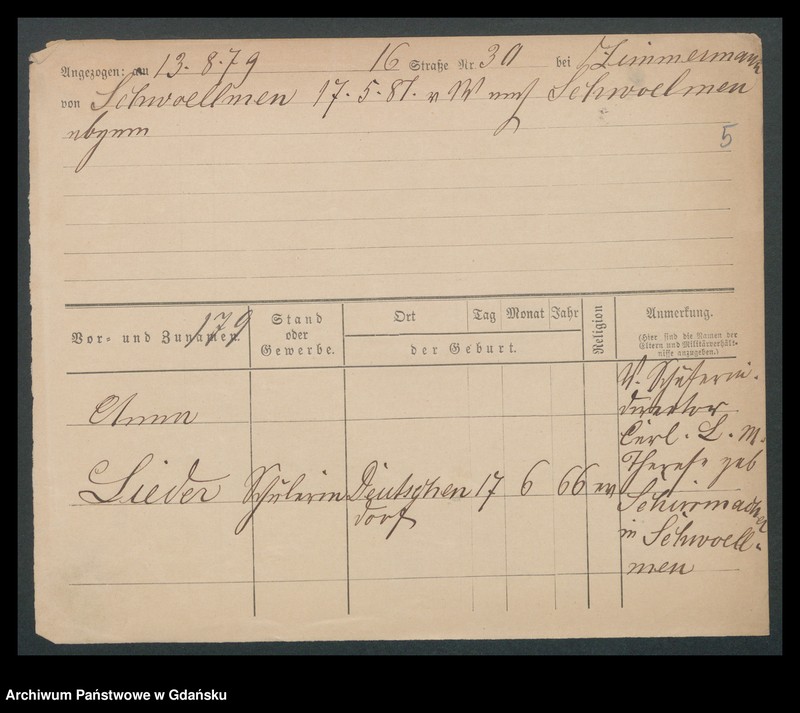 Angezogen: am 13. 8. 79 16 Straße Nr. 30 bei Zimmermann
von Schwoellmen 17. 5. 81. v W nach Schwoelmen
5
179
Vor- und Zunamen.
Stand
oder
Gewerbe.
Ort Tag Monat Jahr
der Geburt.
Religion
Anmerkung.
(Hier sind die Namen der
Eltern und Militärverhält-
nisse anzugeben.)
Anna
Lieder Schülerin Deutschen 17 6 66 ev
dorf
V.
director
Carl. L. M.
Therese geb
Schirrmacher
in Schwoell-
men
Archiwum Państwowe w Gdańsku